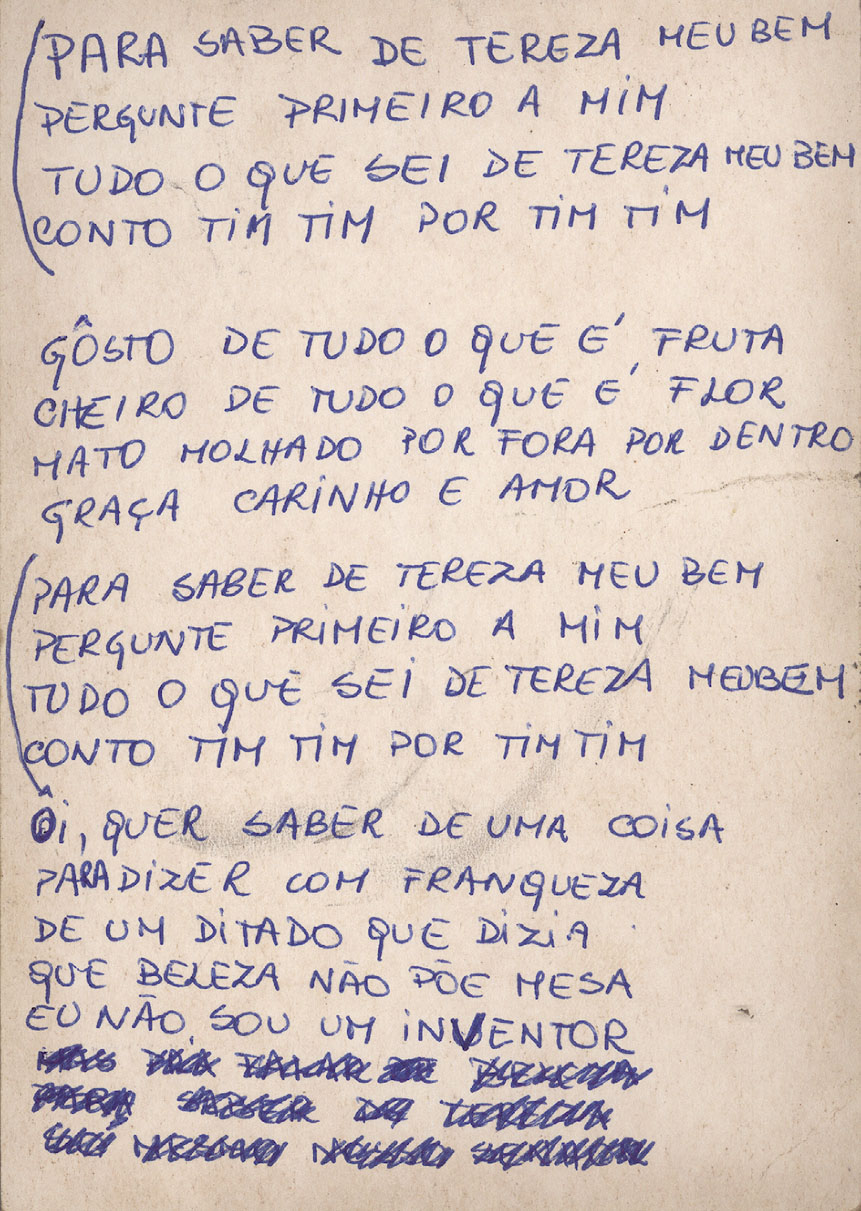 PARA SABER DE TEREZA MEU BEM
PERGUNTE PRIMEIRO A MIM
TUDO O QUE SEI DE TEREZA MEU BEM
CONTO TIM TIM POR TIM TIM
GÔSTO DE TUDO O QUE É FRUTA
CHEIRO DE TUDO O QUE É FLOR
MATO MOLHADO POR FORA POR DENTRO
GRAÇA CARINHO E AMOR
PARA SABER DE TEREZA MEU BEM
PERGUNTE PRIMEIRO A MIM
TUDO O QUE SEI DE TEREZA MEU BEM
CONTO TIM TIM POR TIM TIM
ÔI, QUER SABER DE UMA COISA
PARA DIZER COM FRANQUEZA
DE UM DITADO QUE DIZIA
QUE BELEZA NÃO PÕE MESA
EU NÃO SOU UM INVENTOR